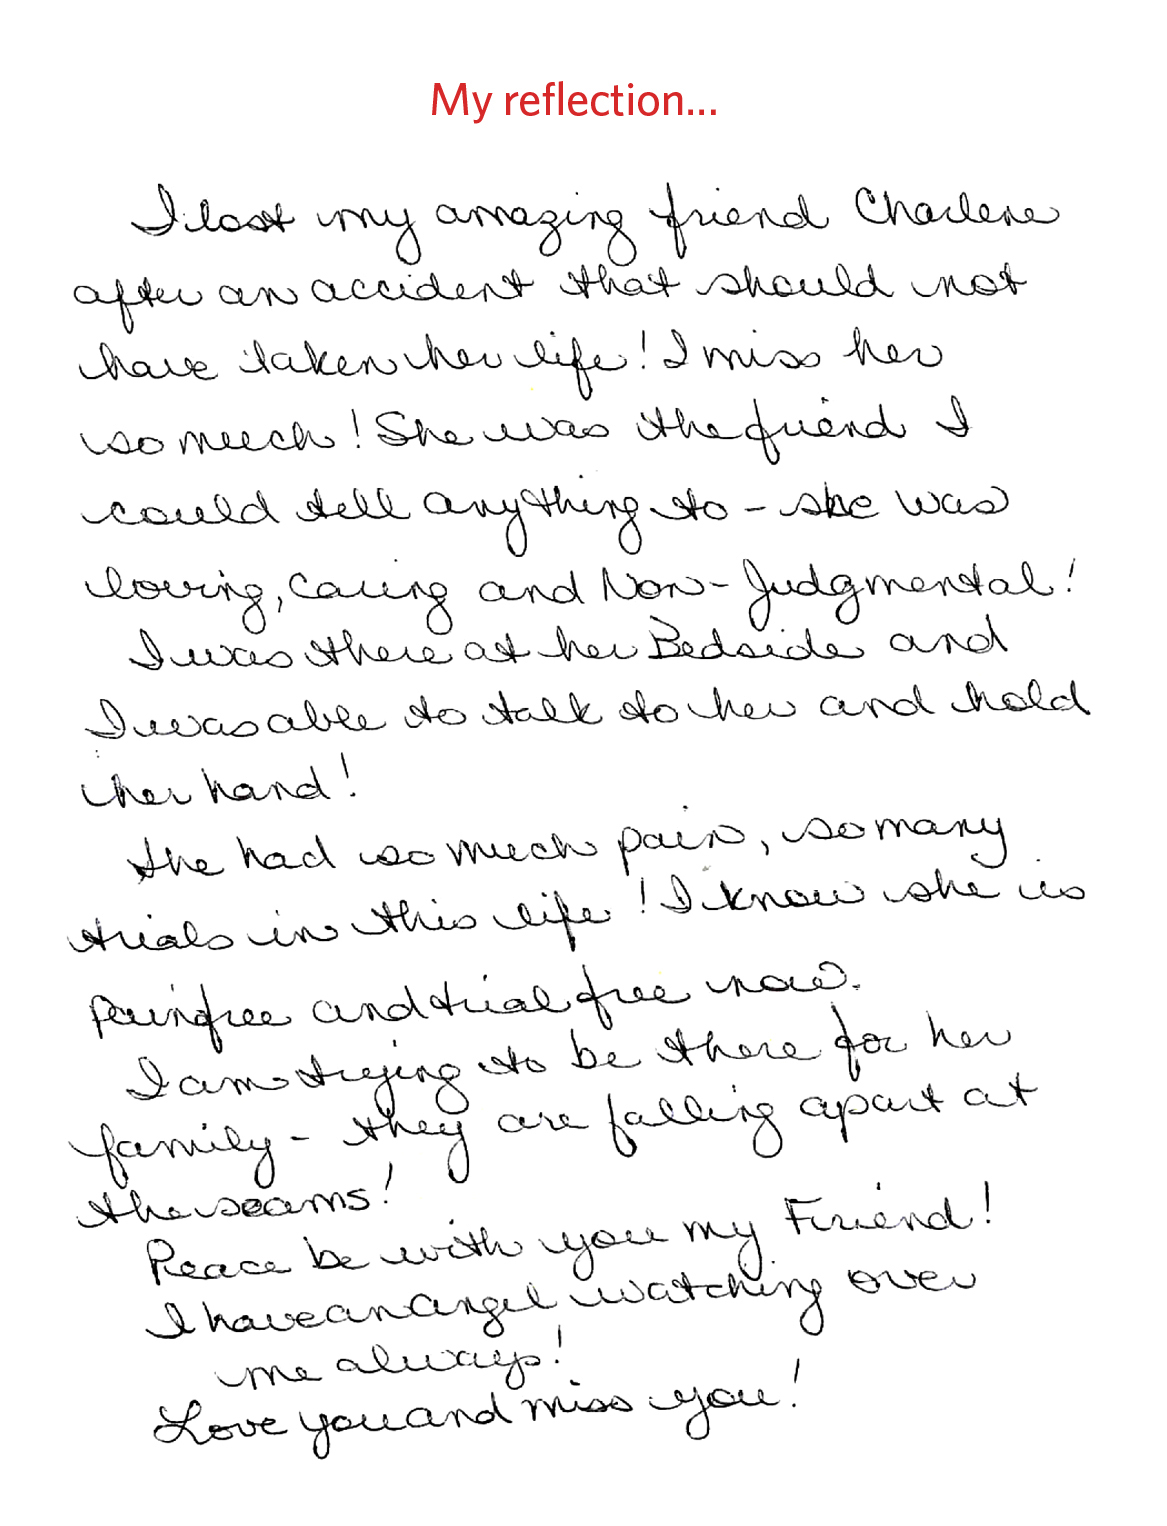 My reflection...
I lost my amazing friend Charlene
after an accident that should not
have taken her life! I miss her
so much! She was the friend I
could tell anything to - she was
loving, caring and Non-Judgmental!
I was there at her Bedside and
I was able to talk to her and hold
her hand!
She had so much pain, so many
trials in this life! I know she is
painfree and trial free now.
I am trying to be there for her
family - they are falling apart at
the seams!
Peace be with you my Friend!
I have an angel watching over
me always!
Love you and miss you!